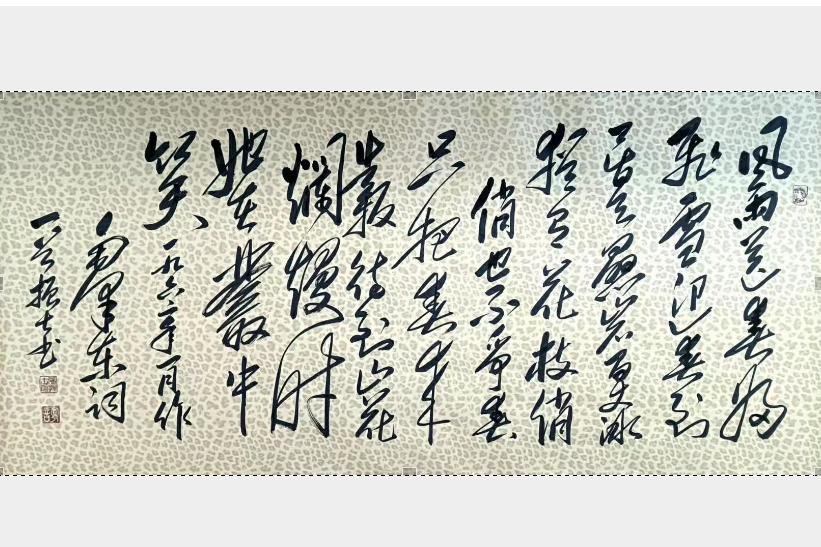 风雨送春归
飞雪迎春到
已是悬岩百丈冰
猶有花枝俏
俏也不争春
只把春来
報待到山花
爛熳时
她在叢中
笑 一九六年一月作
毛泽东词
振书